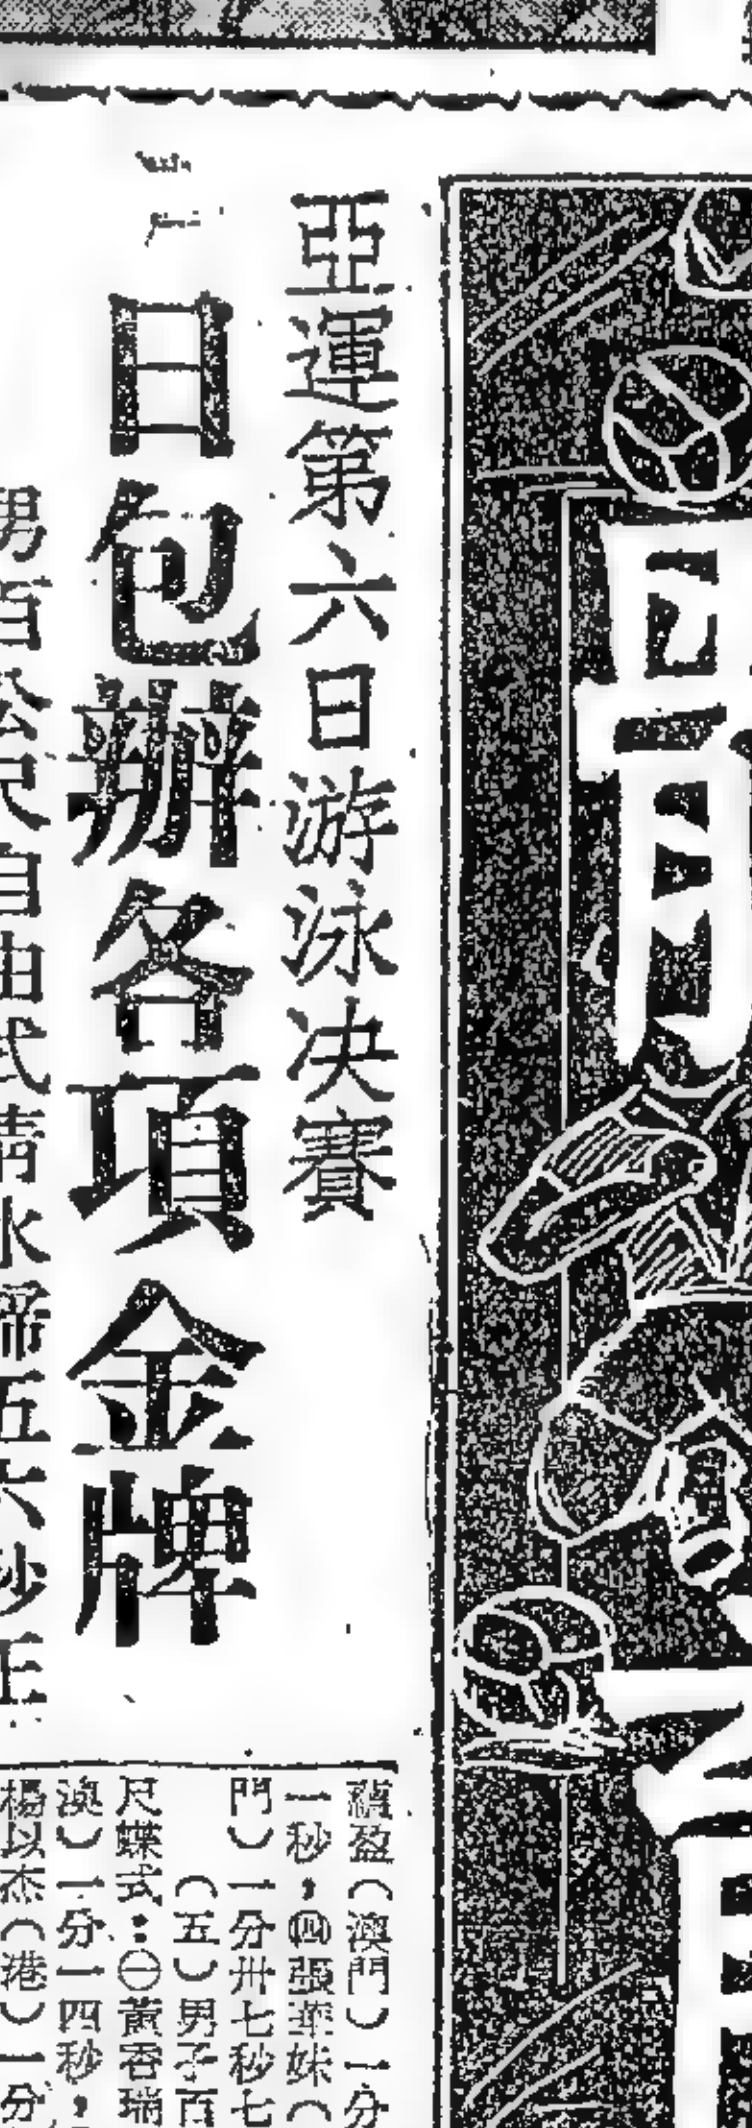 亞運第六日游泳决賽
日包辦各項金牌
男百公尺自由式清水締五六秒正
盈（澳門）一分
一秒，㊃張華妹（
門）一分卅七秒七
（五）男子百
尺蝶式：㊀黃容瑞
澳）一分一四秒，
楊以杰（港）一分